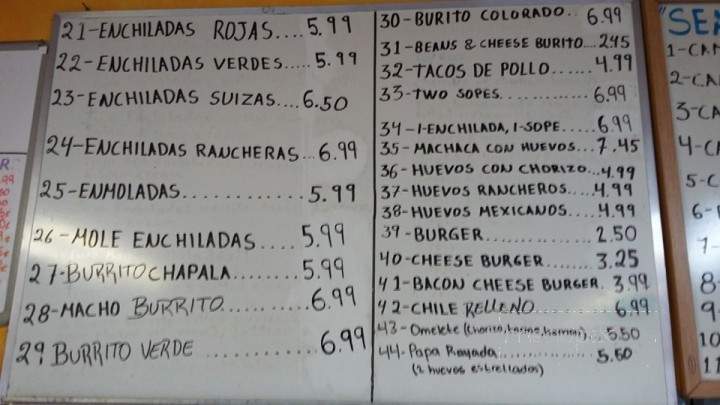 21-ENCHILADAS ROJAS.... 5.99
22-ENCHILADAS VERDES..... 5.99
23-ENCHILADAS SUIZAS.... 6.50
24-ENCHILADAS RANCHERAS... 6.99
25-ENMOLADAS............ 5.99
26-MOLE ENCHILADAS.... 5.99
27-BURRITO CHAPALA........ 5.99
28-MACHO BURRITO.......... 6.99
29 BURRITO VERDE ............ 6.99
30-BURITO COLORADO.. 6.99
31-BEANS & CHEESE BURITO... 2.45
32-TACOS DE POLLO...... 4.99
33-TWO SOPES............. 6.99
34-1-ENCHILADA, 1-SOPE..... 6.99
35-MACHACA CON HUEVOS... 7.45
36-HUEVOS CON CHORIZO... 4.99
37-HUEVOS RANCHEROS.... 4.99
38-HUEVOS MEXICANOS.... 4.99
39-BURGER............... 2.50
40-CHEESE BURGER....... 3.25
41-BACON CHEESE BURGER. 3.99
42-CHILE RELLENO.......... 6.99
43-Omelete (Chorizo, , ).. 5.50
44-Papa ............... 5.50
(2 huevos estrellados)
"SE
1-CA
2-CA
3-CA
4-C
5-C
6-
7-
8-
9-
10
11